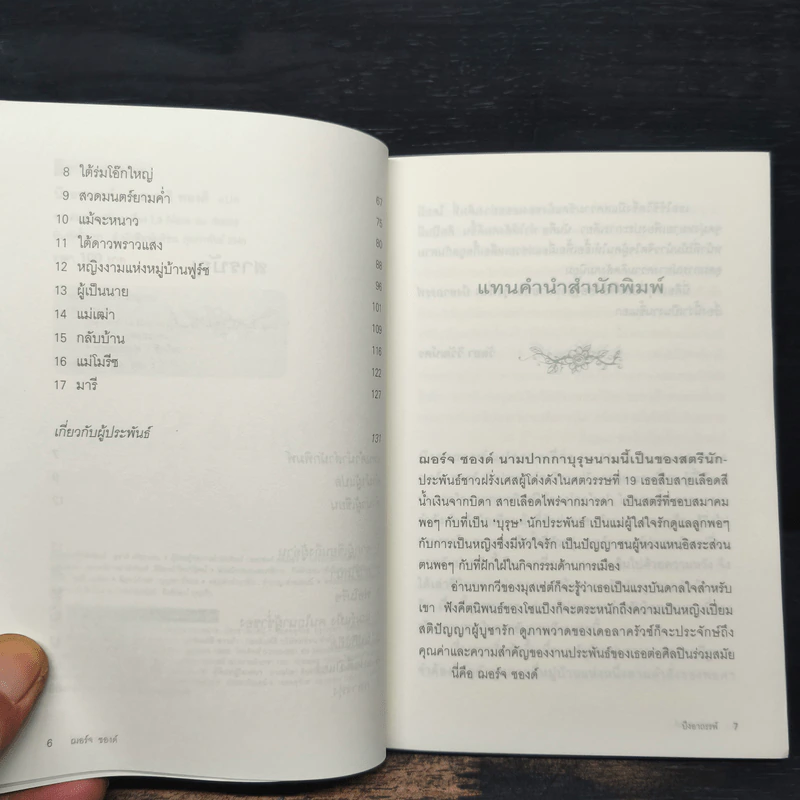 8 ใต้ร่มโอ๊กใหญ่
9 สวดมนตร์ยามค่ำ 67
10 แม้จะหนาว 75
11 ใต้ดาวพราวแสง 80
12 หญิงงามแห่งหมู่บ้านฟูร์ช 88
13 ผู้เป็นนาย 96
14 แม่เฒ่า 101
15 กลับบ้าน 109
16 แม่โมรีซ 116
17 มารี 122
127
เกี่ยวกับผู้ประพันธ์ 131
6 ฌอร์จ ซองด์
แทนคำนำสำนักพิมพ์
ฌอร์จ ซองด์ นามปากกาบุรุษนามนี้เป็นของสตรีนัก-
ประพันธ์ชาวฝรั่งเศสผู้โด่งดังในศตวรรษที่ 19 เธอสืบสายเลือดสี
น้ำเงินจากบิดา สายเลือดไพร่จากมารดา เป็นสตรีที่ชอบสมาคม
พอๆ กับที่เป็น ‘บุรุษ’ นักประพันธ์ เป็นแม่ผู้ใส่ใจรักดูแลลูกพอๆ
กับการเป็นหญิงซึ่งมีหัวใจรัก เป็นปัญญาชนผู้หวงแหนอิสระส่วน
ตนพอๆ กับที่ฝักใฝ่ในกิจกรรมด้านการเมือง
อ่านบทกวีของมุสเซต์ก็จะรู้ว่าเธอเป็นแรงบันดาลใจสำหรับ
เขา ฟังคีตนิพนธ์ของโชแปงก็จะตระหนักถึงความเป็นหญิงเปี่ยม
สติปัญญาผู้บูชารัก ดูภาพวาดของเดอลาครัวซ์ก็จะประจักษ์ถึง
คุณค่าและความสำคัญของงานประพันธ์ของเธอต่อศิลปินร่วมสมัย
นี่คือ ฌอร์จ ซองด์
บึงอาถรรพ์ 7